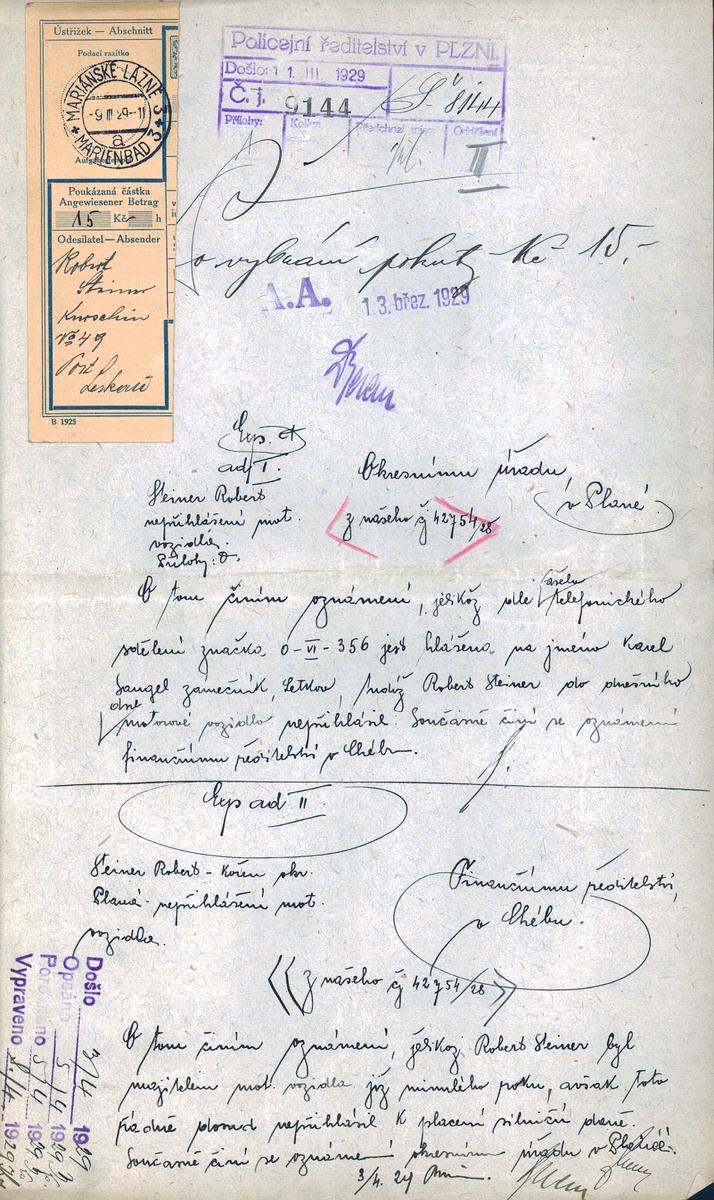 Ústřižek — Abschnitt
Podací razítko
MARIÁNSKÉ LÁZNĚ 3
-9 III 29-11
a
MARIENBAD 3
Poukázaná částka
Angewiesener Betrag
15 Kč h
Odesilatel — Absender
Robert
Steiner
Kurschin
No 49
Post
B 1925
Policejní ředitelství v PLZNI.
Došlo: 11. III. 1929
Č. j. 9144
Š 8144
Přílohy: Kolků Předchozí spisy Oddělení
II
o vybrání pokuty Kč 15.-
A.A. 13. břez. 1929
Exp. ct
ad I. Okresnímu úřadu
v Plané.
Steiner Robert
nepřihlášení mot.
vozidla.
Přílohy:
z našeho čj 42754/28
O tom činím oznámení, jelikož dle
telefonického
sdělení značka O-VI-356 jest hlášena na jméno Karel
Sangel zámečník, Letkov, tudíž Robert Steiner do dnešního
dne
motorové vozidlo nepřihlásil. Současně činí se oznámení
finančnímu ředitelství v Chebu.
Exp ad II
Steiner Robert - Kořen okr.
Planá - nepřihlášení mot.
vozidla.
Finančnímu ředitelství,
v Chebu.
z našeho čj 42754/28
O tom činím oznámení, jelikož Robert Steiner byl
majitelem mot. vozidla již minulého roku, avšak toto
řádně dosud nepřihlásil k placení silniční daně.
Současně činí se oznámení okresnímu úřadu v Plané.
3/4. 29
Došlo 3/4 1929
Opsáno 5/4 1929
Porovnáno 5/4 1929
Vypraveno 8./4. 1929